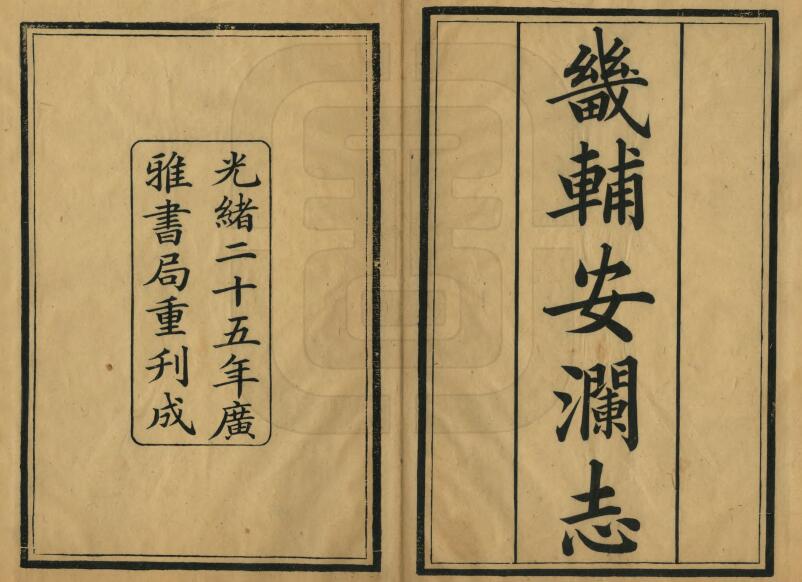 畿輔安瀾志
光緒二十五年廣
雅書局重刋成